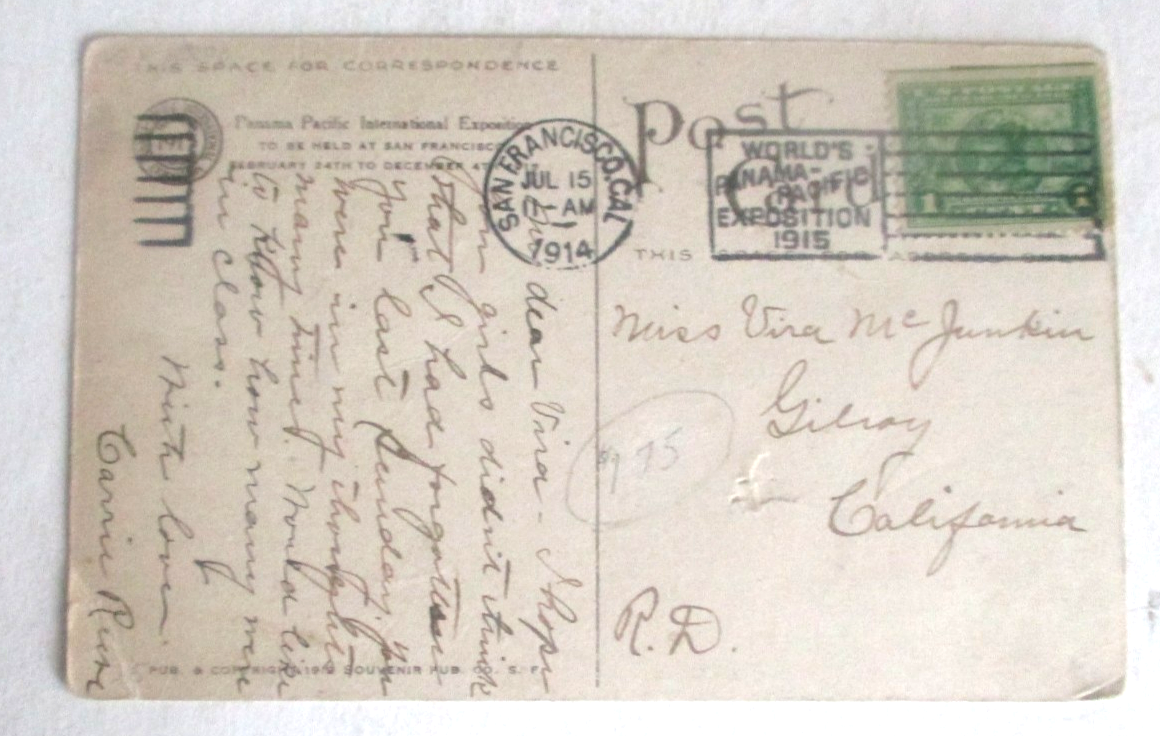 THIS SPACE FOR CORRESPONDENCE
Panama Pacific International Exposition
TO BE HELD AT SAN FRANCISCO
FEBRUARY 24TH TO DECEMBER 4TH
Post
Card
THIS SPACE FOR ADDRESS
SAN FRANCISCO, CAL
JUL 15
1 - AM
1914
WORLD'S
PANAMA-
PACIFIC
EXPOSITION
1915
U.S. POSTAGE
1
My dear Vira - I hope
you girls didn't think
that I had forgotten
you last Sunday. You
were in my thoughts
many times. Would like
to know how many were
in class.
With love
Carrie
Miss Vira McJunkin
Gilroy
California
R.D.
PUB. & COPYRIGHT SOUVENIR PUB. CO. S. F.